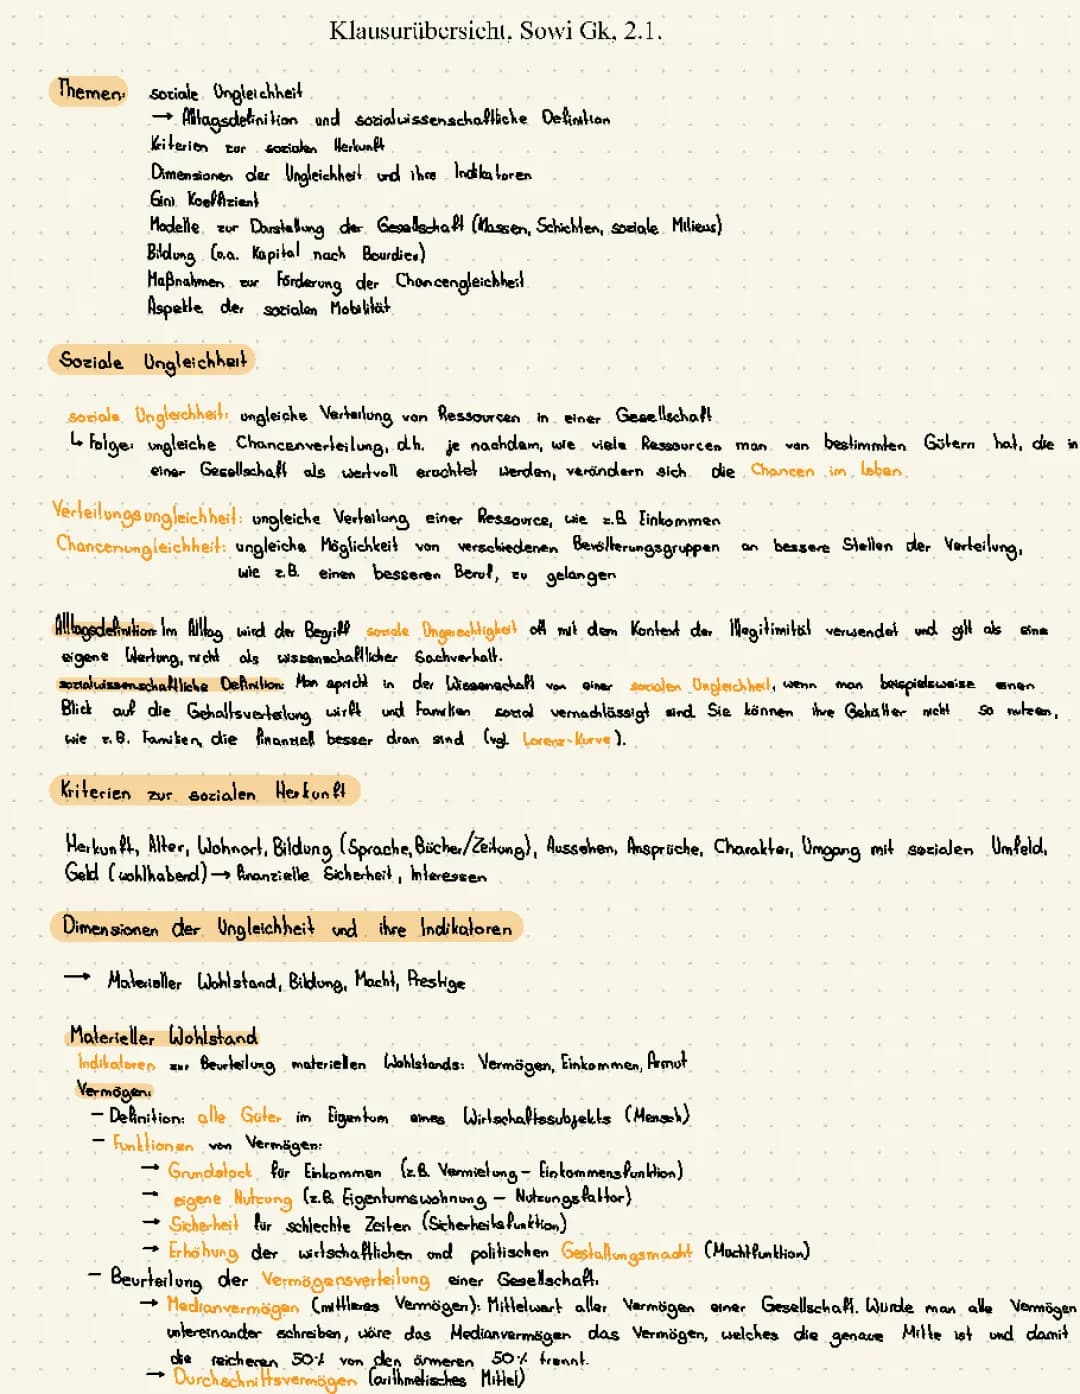 Klausurübersicht, Sowi Gk, 2.1.
Themen: soziale Ungleichheit
→ Alltagsdefinition und sozialwissenschaftliche Definition
Kriterien zur sozialen Herkunft
Dimensionen der Ungleichheit und ihre Indikatoren
Gini Koeffizient
Modelle zur Darstellung der Gesellschaft (Klassen, Schichten, soziale Milieus)
Bildung (o.a. Kapital nach Bourdieu)
Maßnahmen zur Förderung der Chancengleichheit
Aspekte der sozialen Mobilität
Soziale Ungleichheit
soziale Ungleichheit: ungleiche Verteilung von Ressourcen in einer Gesellschaft
↳ Folge: ungleiche Chancenverteilung, d.h. je nachdem, wie viele Ressourcen man von bestimmten Gütern hat, die in
einer Gesellschaft als wertvoll erachtet werden, verändern sich die Chancen im Leben.
Verteilungsungleichheit: ungleiche Verteilung einer Ressource, wie z.B. Einkommen
Chancenungleichheit: ungleiche Möglichkeit von verschiedenen Bevölkerungsgruppen an bessere Stellen der Verteilung,
wie z.B. einen besseren Beruf, zu gelangen
Alltagsdefinition: Im Alltag wird der Begriff soziale Ungerechtigkeit oft mit dem Kontext der Illegitimität verwendet und gilt als eine
eigene Wertung, nicht als wissenschaftlicher Sachverhalt.
sozialwissenschaftliche Definition: Man spricht in der Wissenschaft von einer sozialen Ungleichheit, wenn man beispielsweise einen
Blick auf die Gehaltsverteilung wirft und Familien sozial vernachlässigt sind. Sie können ihre Gehälter nicht so nutzen,
wie z.B. Familien, die finanziell besser dran sind (vgl. Lorenz-Kurve).
Kriterien zur sozialen Herkunft
Herkunft, Alter, Wohnort, Bildung (Sprache, Bücher/Zeitung), Aussehen, Ansprüche, Charakter, Umgang mit sozialen Umfeld,
Geld (wohlhabend) → finanzielle Sicherheit, Interessen
Dimensionen der Ungleichheit und ihre Indikatoren
→ Materieller Wohlstand, Bildung, Macht, Prestige
Materieller Wohlstand
Indikatoren zur Beurteilung materiellen Wohlstands: Vermögen, Einkommen, Armut
Vermögen:
- Definition: alle Güter im Eigentum eines Wirtschaftssubjekts (Mensch)
- Funktionen von Vermögen:
→ Grundstock für Einkommen (z.B. Vermietung - Einkommensfunktion)
→ eigene Nutzung (z.B. Eigentumswohnung - Nutzungsfaktor)
→ Sicherheit für schlechte Zeiten (Sicherheitsfunktion)
→ Erhöhung der wirtschaftlichen und politischen Gestaltungsmacht (Machtfunktion)
- Beurteilung der Vermögensverteilung einer Gesellschaft:
→ Medianvermögen (mittleres Vermögen): Mittelwert aller Vermögen einer Gesellschaft. Würde man alle Vermögen
untereinander schreiben, wäre das Medianvermögen das Vermögen, welches die genaue Mitte ist und damit
die reicheren 50% von den ärmeren 50% trennt.
→ Durchschnittsvermögen (arithmetisches Mittel)